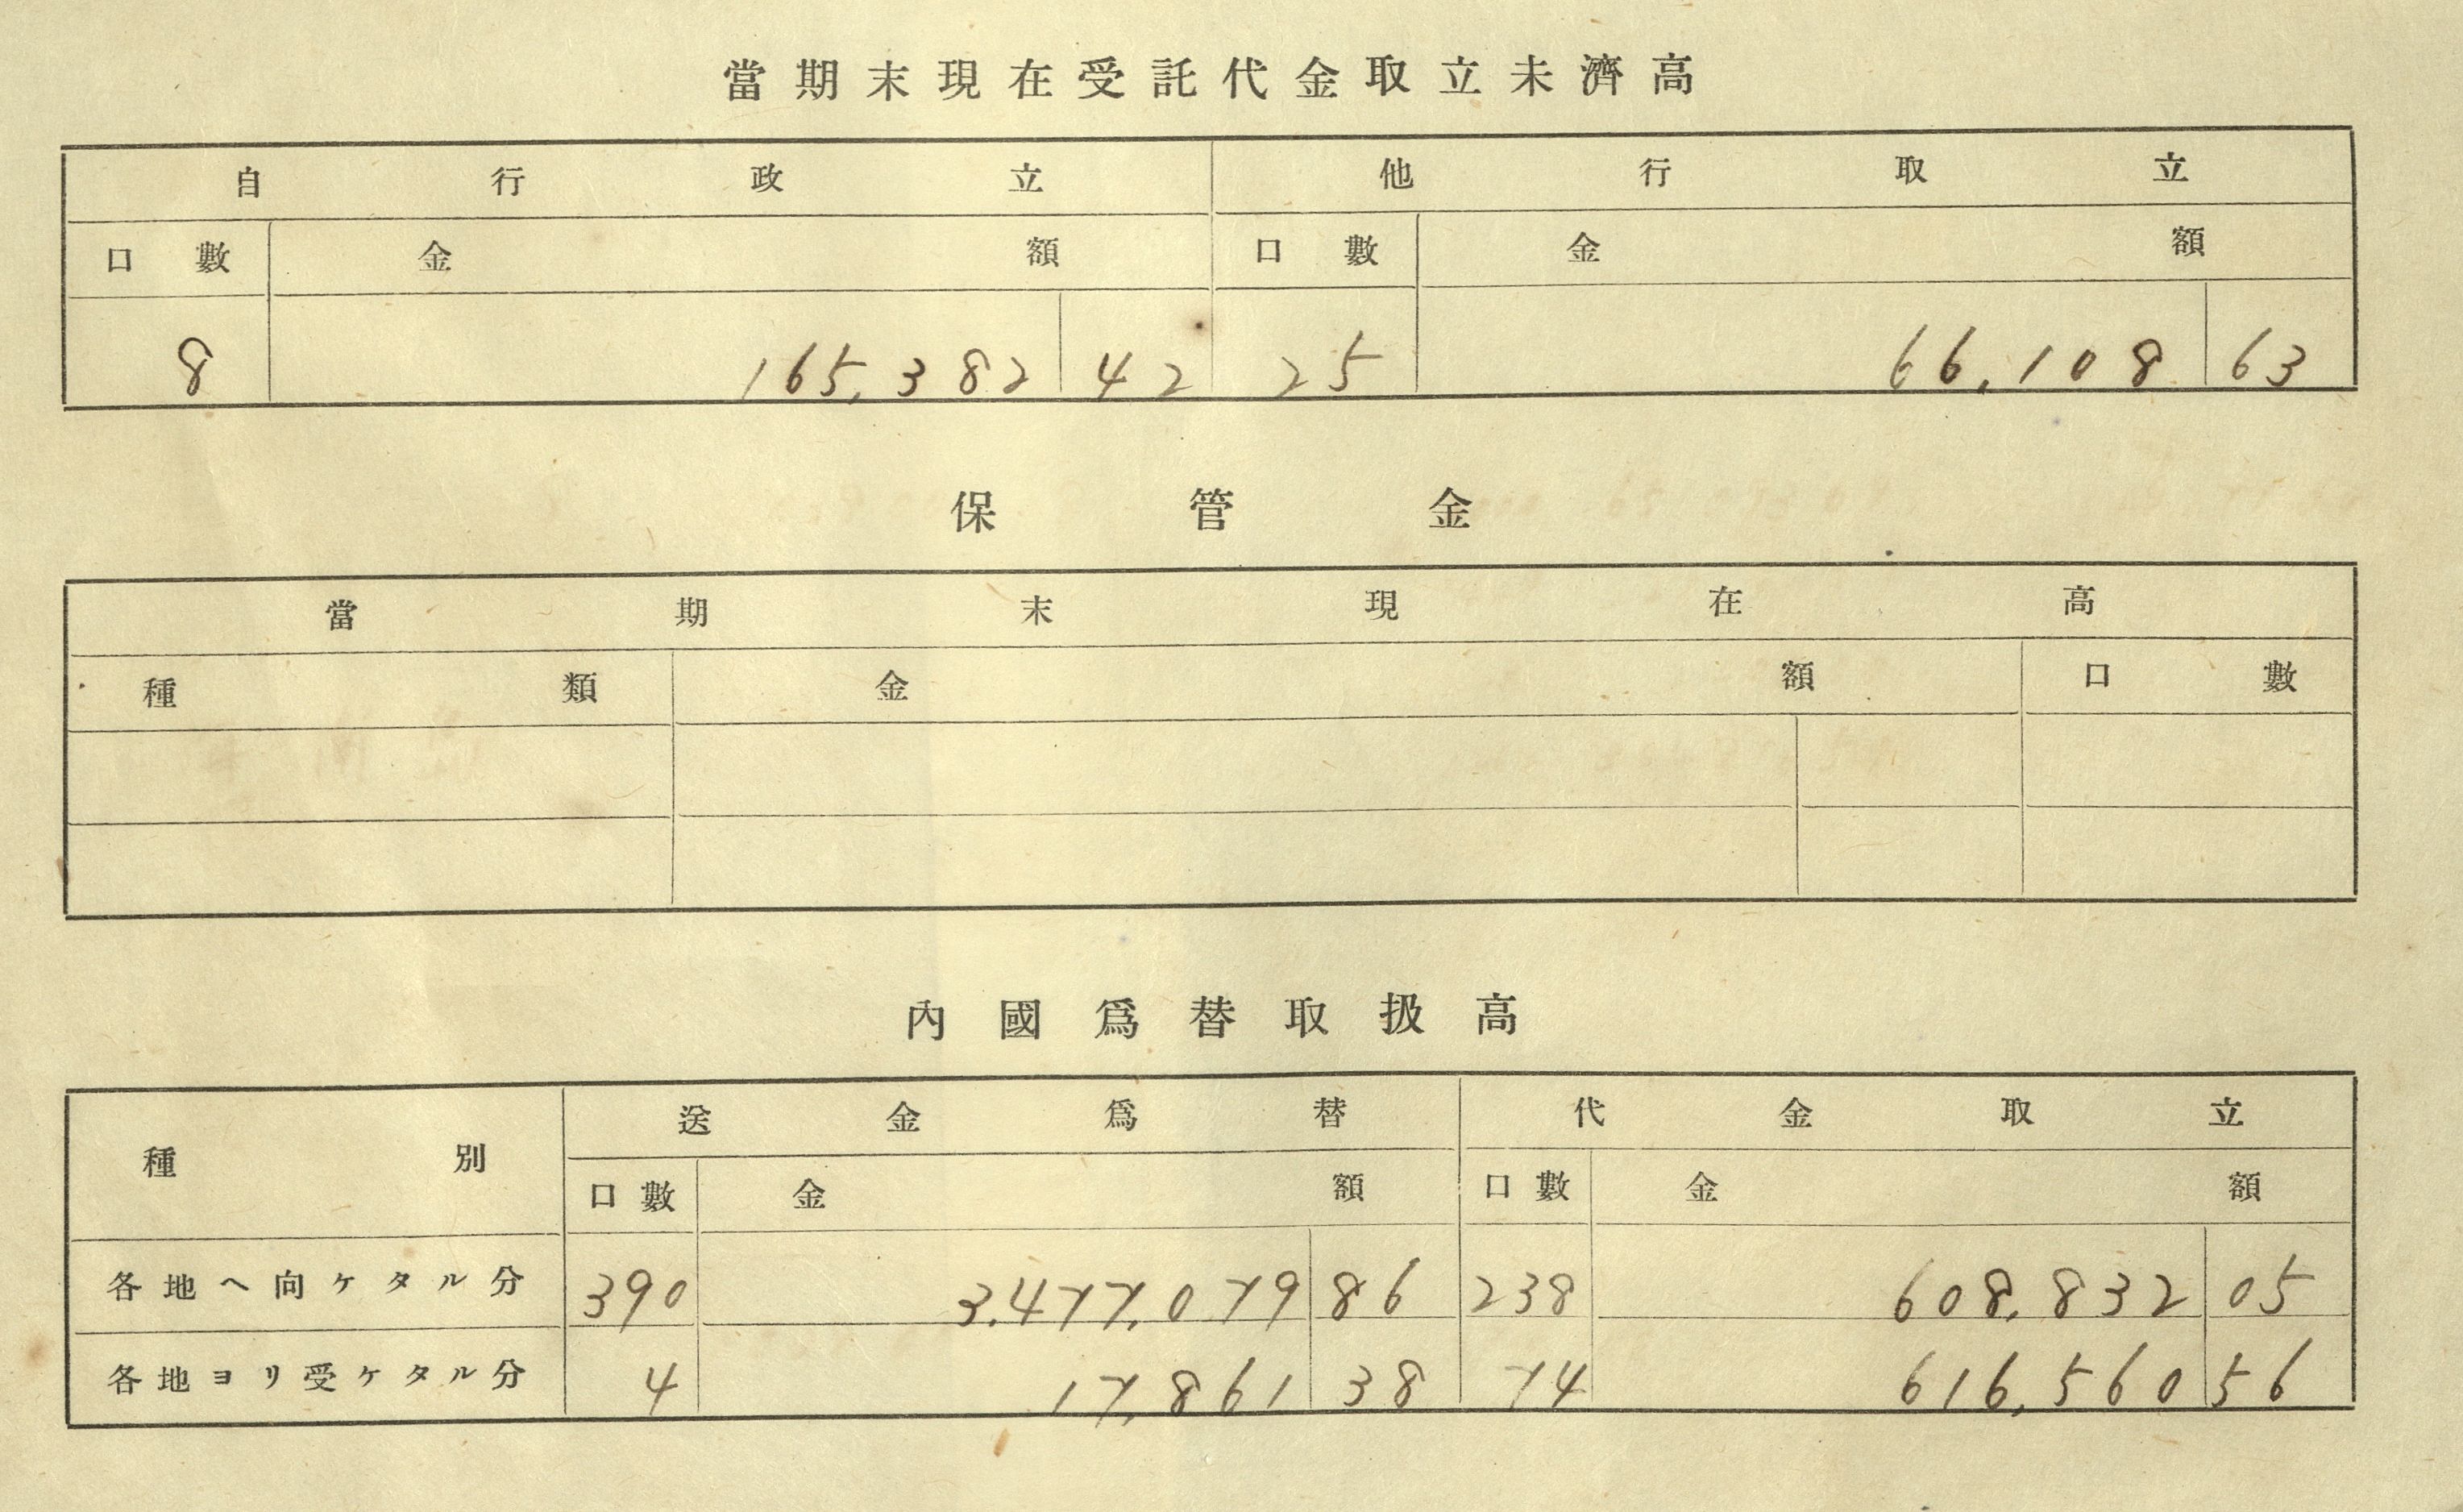 當期末現在受託代金取立未濟高
自行政立 他行取立
口數 金額 口數 金額
8 165,382 42 25 66,108 63
保管金
當期末現在高
種類 金額 口數
內國爲替取扱高
種別 送金爲替 代金取立
口數 金額 口數 金額
各地ヘ向ケタル分 390 3.477,079 86 238 608,832 05
各地ヨリ受ケタル分 4 17,861 38 74 616,560 56